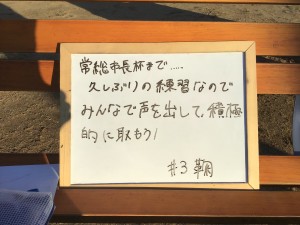 常総市長杯まで.....
久しぶりの練習なので
みんなで声を出して、積極
的に取もう!
#3 鞘